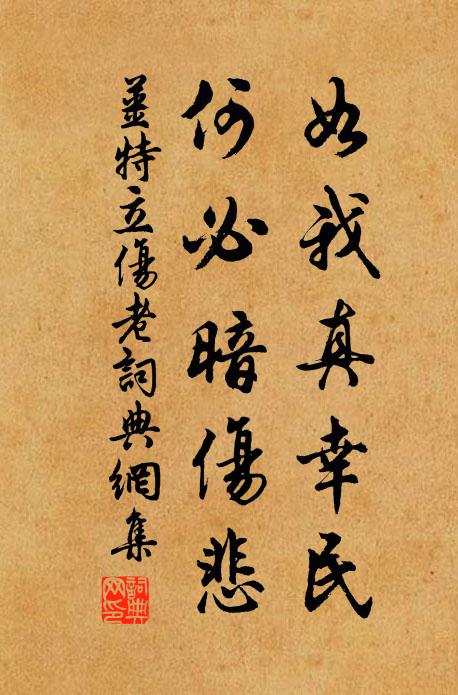 如我真幸民
何必暗傷悲
姜特立傷老詞典網集
詞典網印